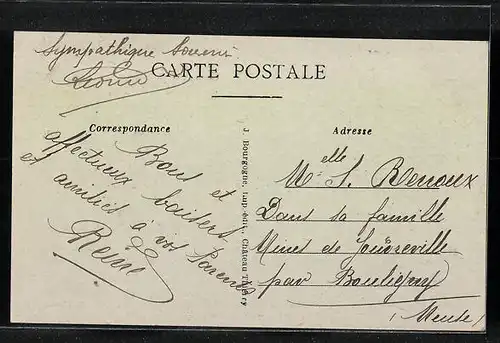 Sympathique Souvenir
Léonie
CARTE POSTALE
Correspondance
Adresse
Bons et
affectueux baisers
et amitiés à vos Parents
Reine
J. Bourgogne, Imp.-édit., Château Thierry
Melle S. Renoux
Dans sa famille
Mines de Joudreville
par Bouligny
(Meuse)